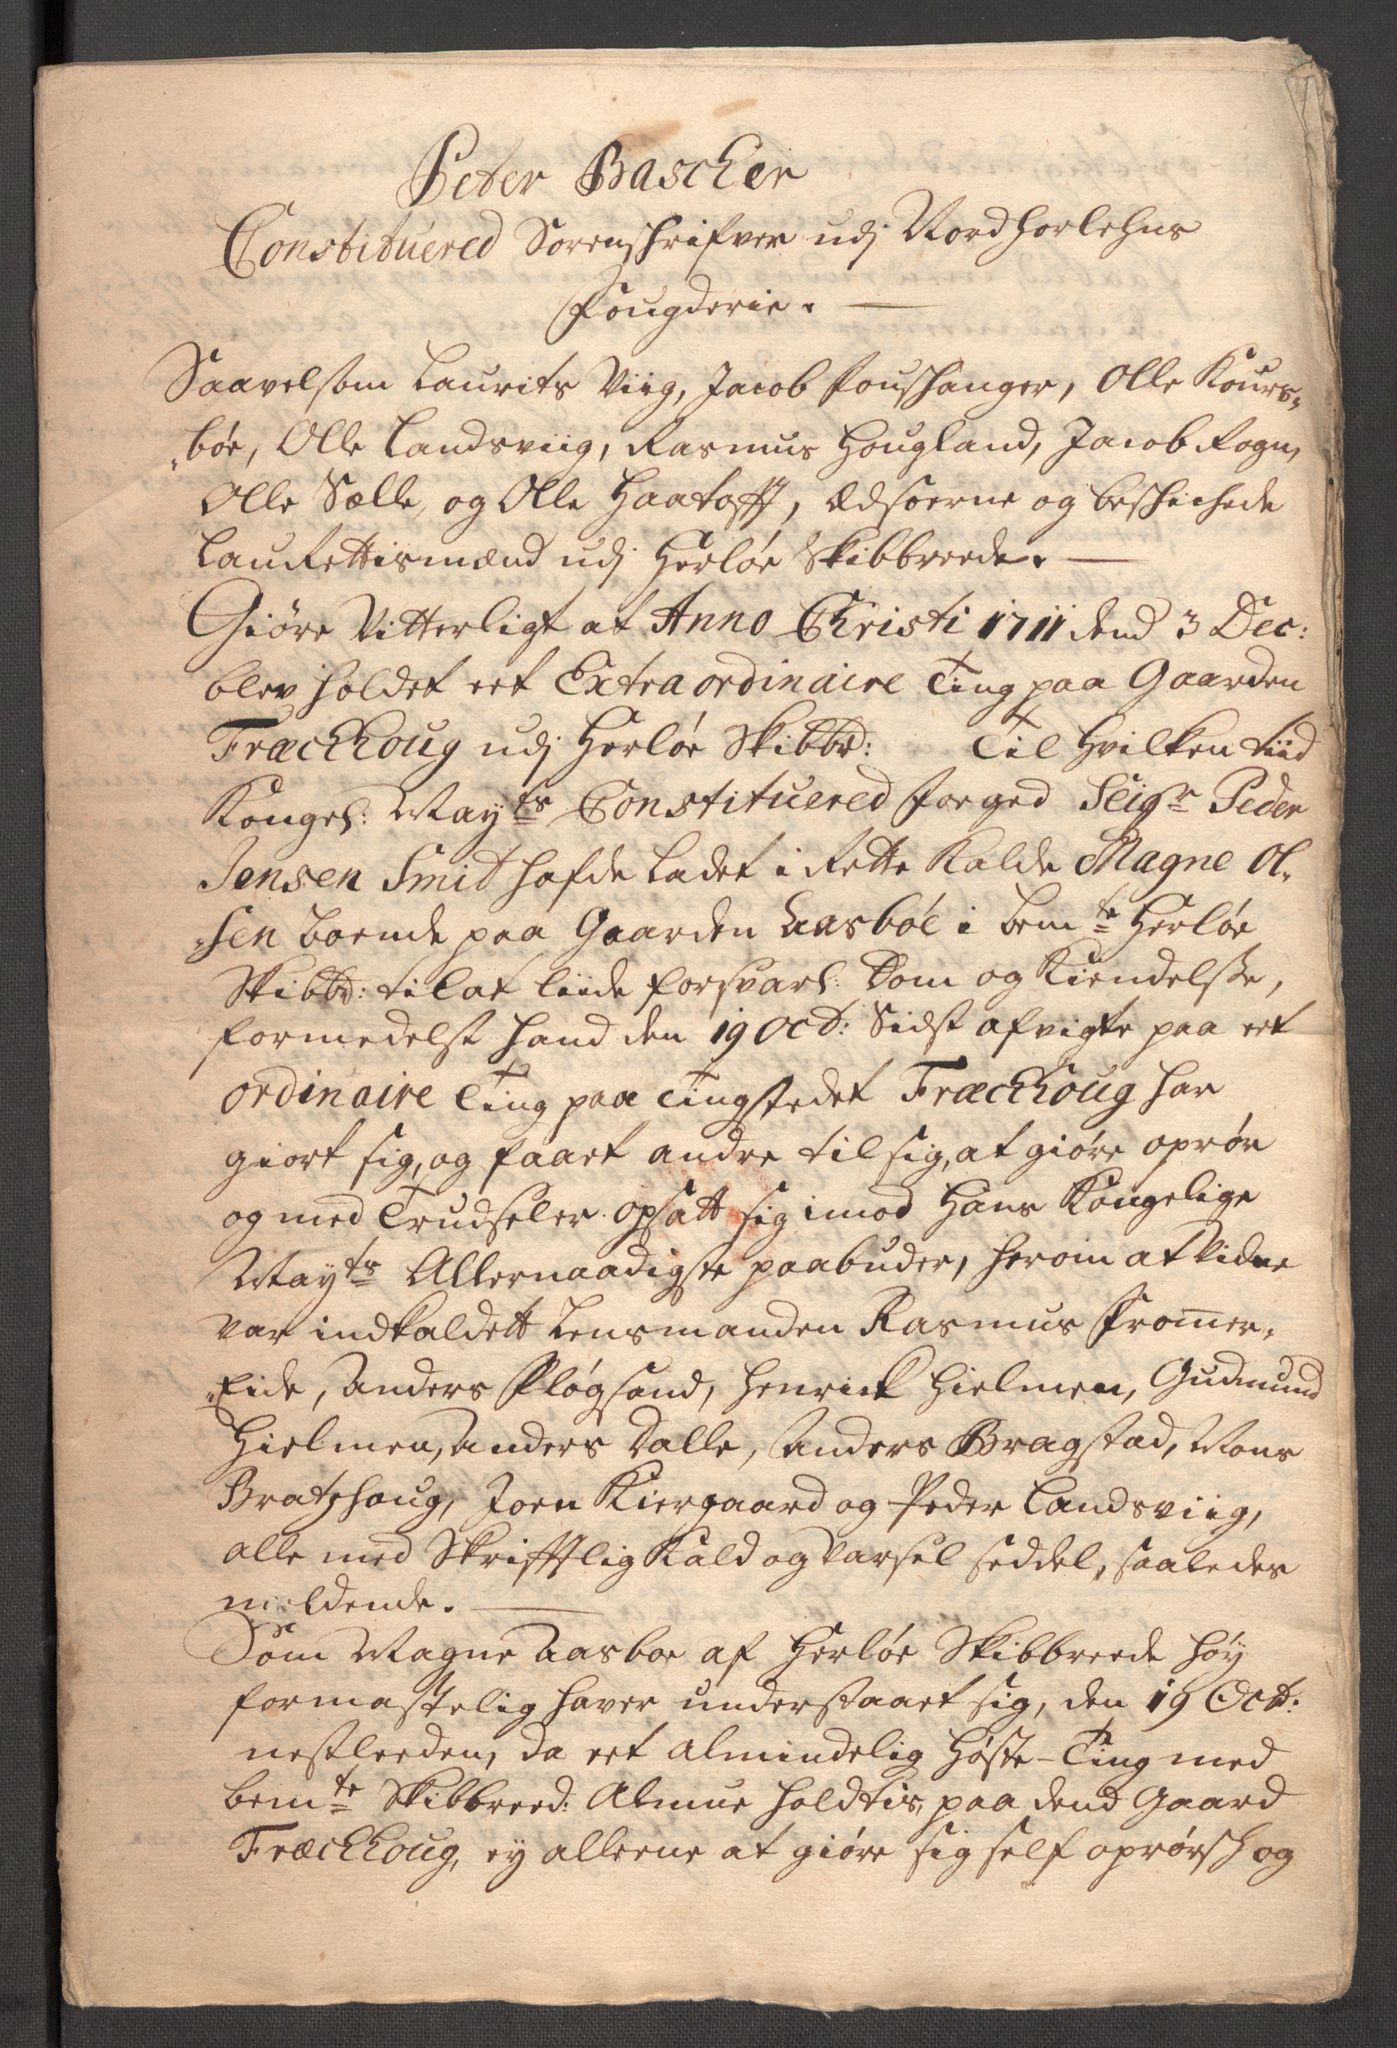 Peter Bascher
Constituered Sorenschrifver udj Nordhorlehns
Fougderie.
Saavelsom Laurits Viig, Jacob Foushanger, Olle Kours„
„bøe, Olle Landsviig, Rasmus Hougland, Jacob Rogn,
Olle Sælle, og Olle Haatofft, Edsoerne og beschichede
LauRettismænd udj Herløe Skibbreede.
Giøre Vitterligt at Anno Christi 1711 dend 3 Dec:
blev holdet eet Extra ordinaire Ting paa Gaarden
Fræchhoug udj Herløe Skibbr: Til Hvilken tiid
Kongel: May ts Constituered Foeged Seigr Peder
Jensen Smit hafde Ladet i Rette Kalde Magne Ol„
„sen boende paa Gaarden Aasbøe i bemte Herløe
Skibbr: til at liide forsvarl: Dom og Kiendelsse,
formedelst hand den 19 Oct: Sidst afvigte paa eet
ordinaire Ting paa Tingstedet Fræchhoug har
giort sig, og faaet andre til sig, at giøre oprør
og med Trudseler opsatt sig imod Hans Kongelige
May ts Allernaadigste paabuder, herom at Vidne
var indkaldett Lensmanden Rasmus Fromer„
„Eide, Anders Fløgsand, Henrick Hielmen, Gudmund
Hielmen, Anders Dalle, Anders Bragstad, Mons
Bratzhoug, Joen Kiergaard og Peder Landsviig,
alle med Skrifftlig Kald og varsel seddel, saaledes
meldende.
Som Magne Aasboe af Herløe Skibbreede høy
formastelig haver understaaet sig, den 19 Oct:
nestleeden, da eet almindelig Høste-Ting med
bemte Skibbreed: Almue holdtis, paa dend Gaard
Fræchhoug, ey alleene at giøre sig self oprørsch og